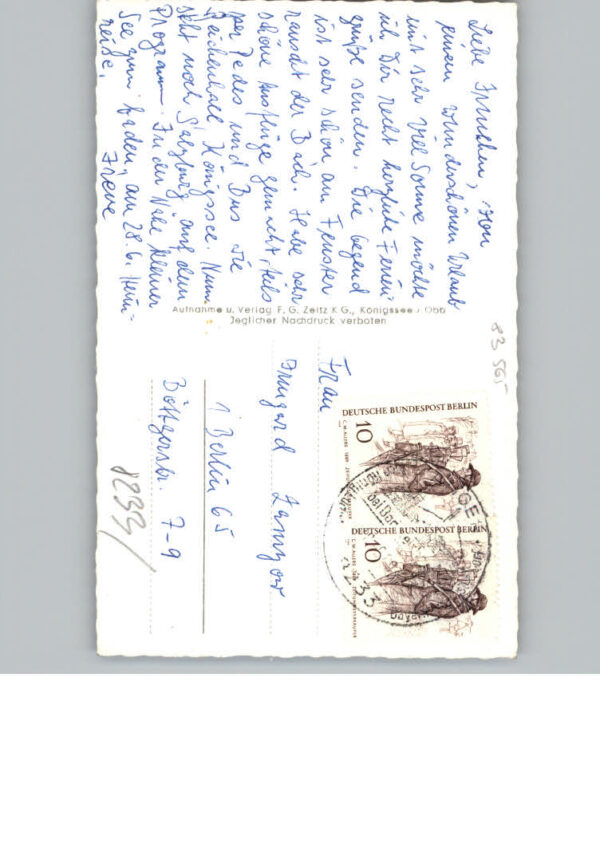 Liebe Irmchen, von
einem wunderschönen Urlaub
mit sehr viel Sonne möchte
ich Dir recht herzliche Ferien
grüße senden. Die Gegend
ist sehr schön am Fenster
rauscht der Bach. Habe sehr
schöne Ausflüge gemacht, teils
per Pedes und Bus wie
Reichenhall, Königssee. Nun
steht noch Salzburg auf dem
Programm. In der Nähe kleiner
See zum baden, am 28.6. Heim-
reise.
Aufnahme u. Verlag F. G. Zeitz K G., Königssee / Obb
Jeglicher Nachdruck verboten
83 565
Frau
Irmgard
1 Berlin 65
Böttgerstr. 7-9
8233/
DEUTSCHE BUNDESPOST BERLIN
10
DEUTSCHE BUNDESPOST BERLIN
10